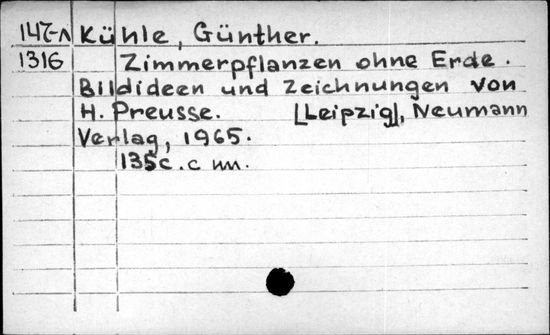 147-л Kühle, Günther.
1316 Zimmerpflanzen ohne Erde.
Bildideen und Zeichnungen von
H. Preusse. [Leipzig], Neumann
Verlag, 1965.
135с. с илл.